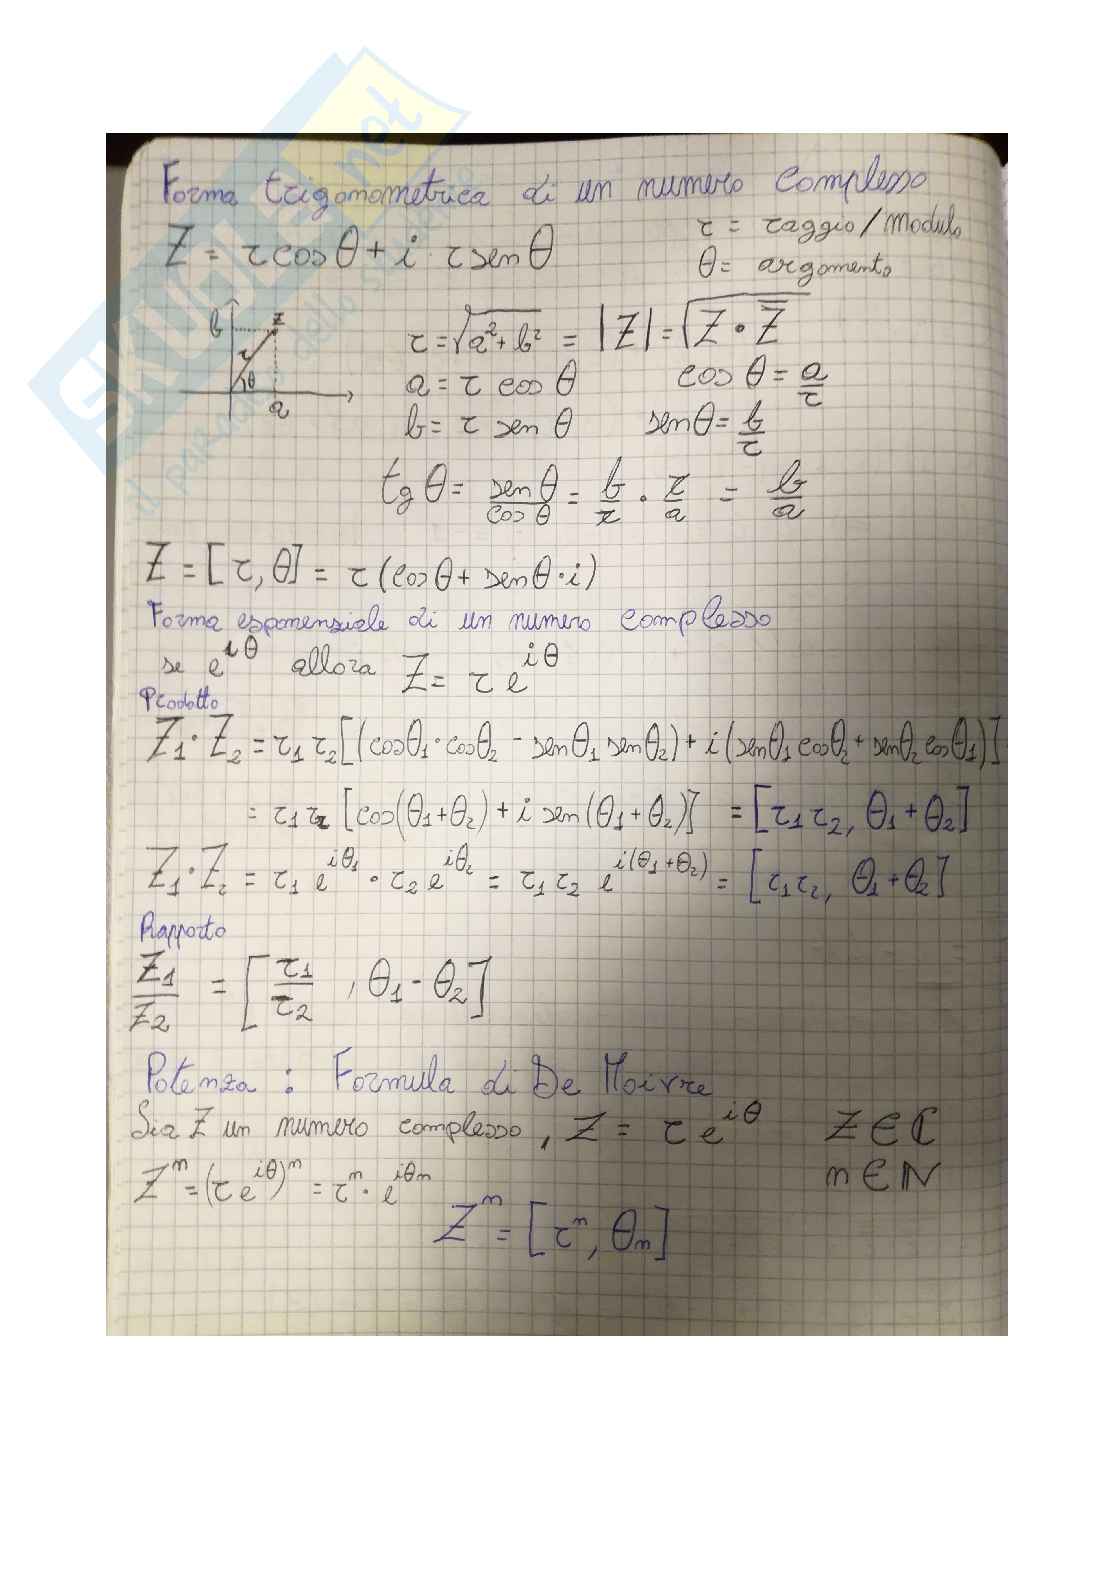 Forma trigonometrica di un numero complesso
Z = r cos θ + i · r sen θ
r = raggio / modulo
θ = argomento
b z
r
θ
a
r = √(a² + b²) = |Z| = √(Z · Z̅)
a = r cos θ cos θ = a/r
b = r sen θ sen θ = b/r
tg θ = sen θ / cos θ = b/r · r/a = b/a
Z = [r, θ] = r (cos θ + sen θ · i)
Forma esponenziale di un numero complesso
se e^{iθ} allora Z = r e^{iθ}
Prodotto
Z₁ · Z₂ = r₁ r₂ [(cos θ₁ · cos θ₂ - sen θ₁ sen θ₂) + i (sen θ₁ cos θ₂ + sen θ₂ cos θ₁)]
= r₁ r₂ [cos(θ₁ + θ₂) + i sen (θ₁ + θ₂)] = [r₁ r₂, θ₁ + θ₂]
Z₁ · Z₂ = r₁ e^{iθ₁} · r₂ e^{iθ₂} = r₁ r₂ e^{i(θ₁+θ₂)} = [r₁ r₂, θ₁ + θ₂]
Rapporto
Z₁/Z₂ = [r₁/r₂, θ₁ - θ₂]
Potenza : Formula di De Moivre
Sia Z un numero complesso, Z = r e^{iθ} Z ∈ ℂ
Zⁿ = (r e^{iθ})ⁿ = rⁿ · e^{iθn} n ∈ ℕ
Zⁿ = [rⁿ, θn]
SKUOLA.net
il paradiso dello studente